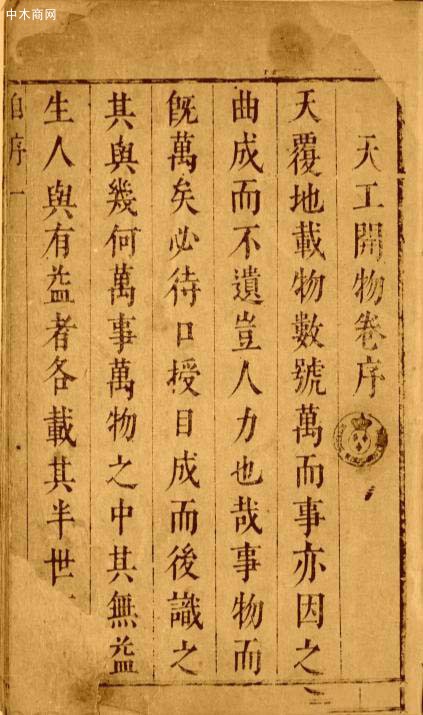 中木商网
天工開物卷序
天覆地載物數號萬而事亦因之
曲成而不遺豈人力也哉事物而
既萬矣必待口授目成而後識之
其與幾何萬事萬物之中其無益
生人與有益者各載其半世
自序一